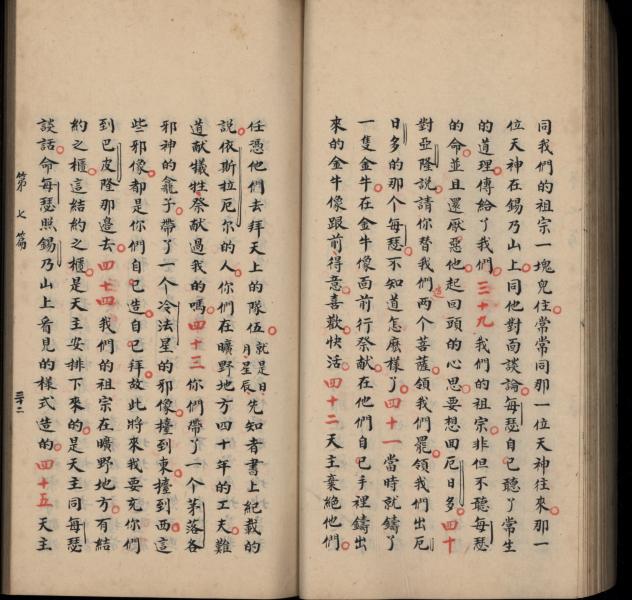 同我們的祖宗一塊兒住常常同那一位天神往來那一
位天神在錫乃山上同他對面談論每瑟自己聽了常生
的道理傳給了我們三十九我們的祖宗非但不聽每瑟
的命並且還厭惡他起回頭的心思要想回厄日多四十
對亞隆說請你替我們造兩个菩薩領我們罷領我們出厄
日多的那个每瑟不知道怎麽樣了四十一當時就鑄了
一隻金牛在金牛像面前行祭献在他們自己手裡鑄出
來的金牛像跟前得意喜歡快活四十二天主棄絶他們
任憑他們去拜天上的隊伍就是日月星辰先知者書上紀載的
說依斯拉厄尔的人你們在曠野地方四十年的工夫難
道献犧牲祭献過我的嗎四十三你們帶了一个茅落各
邪神的龕子帶了一个冷法星的邪像擡到東擡到西這
些邪像都是你們自己造自己拜故此將來我要充你們
到巴皮隆那邊去四十四我們的祖宗在曠野地方有結
約之櫃這結約之櫃是天主安排下來的是天主同每瑟
談話命每瑟照錫乃山上看見的樣式造的四十五天主
第七篇
三十二